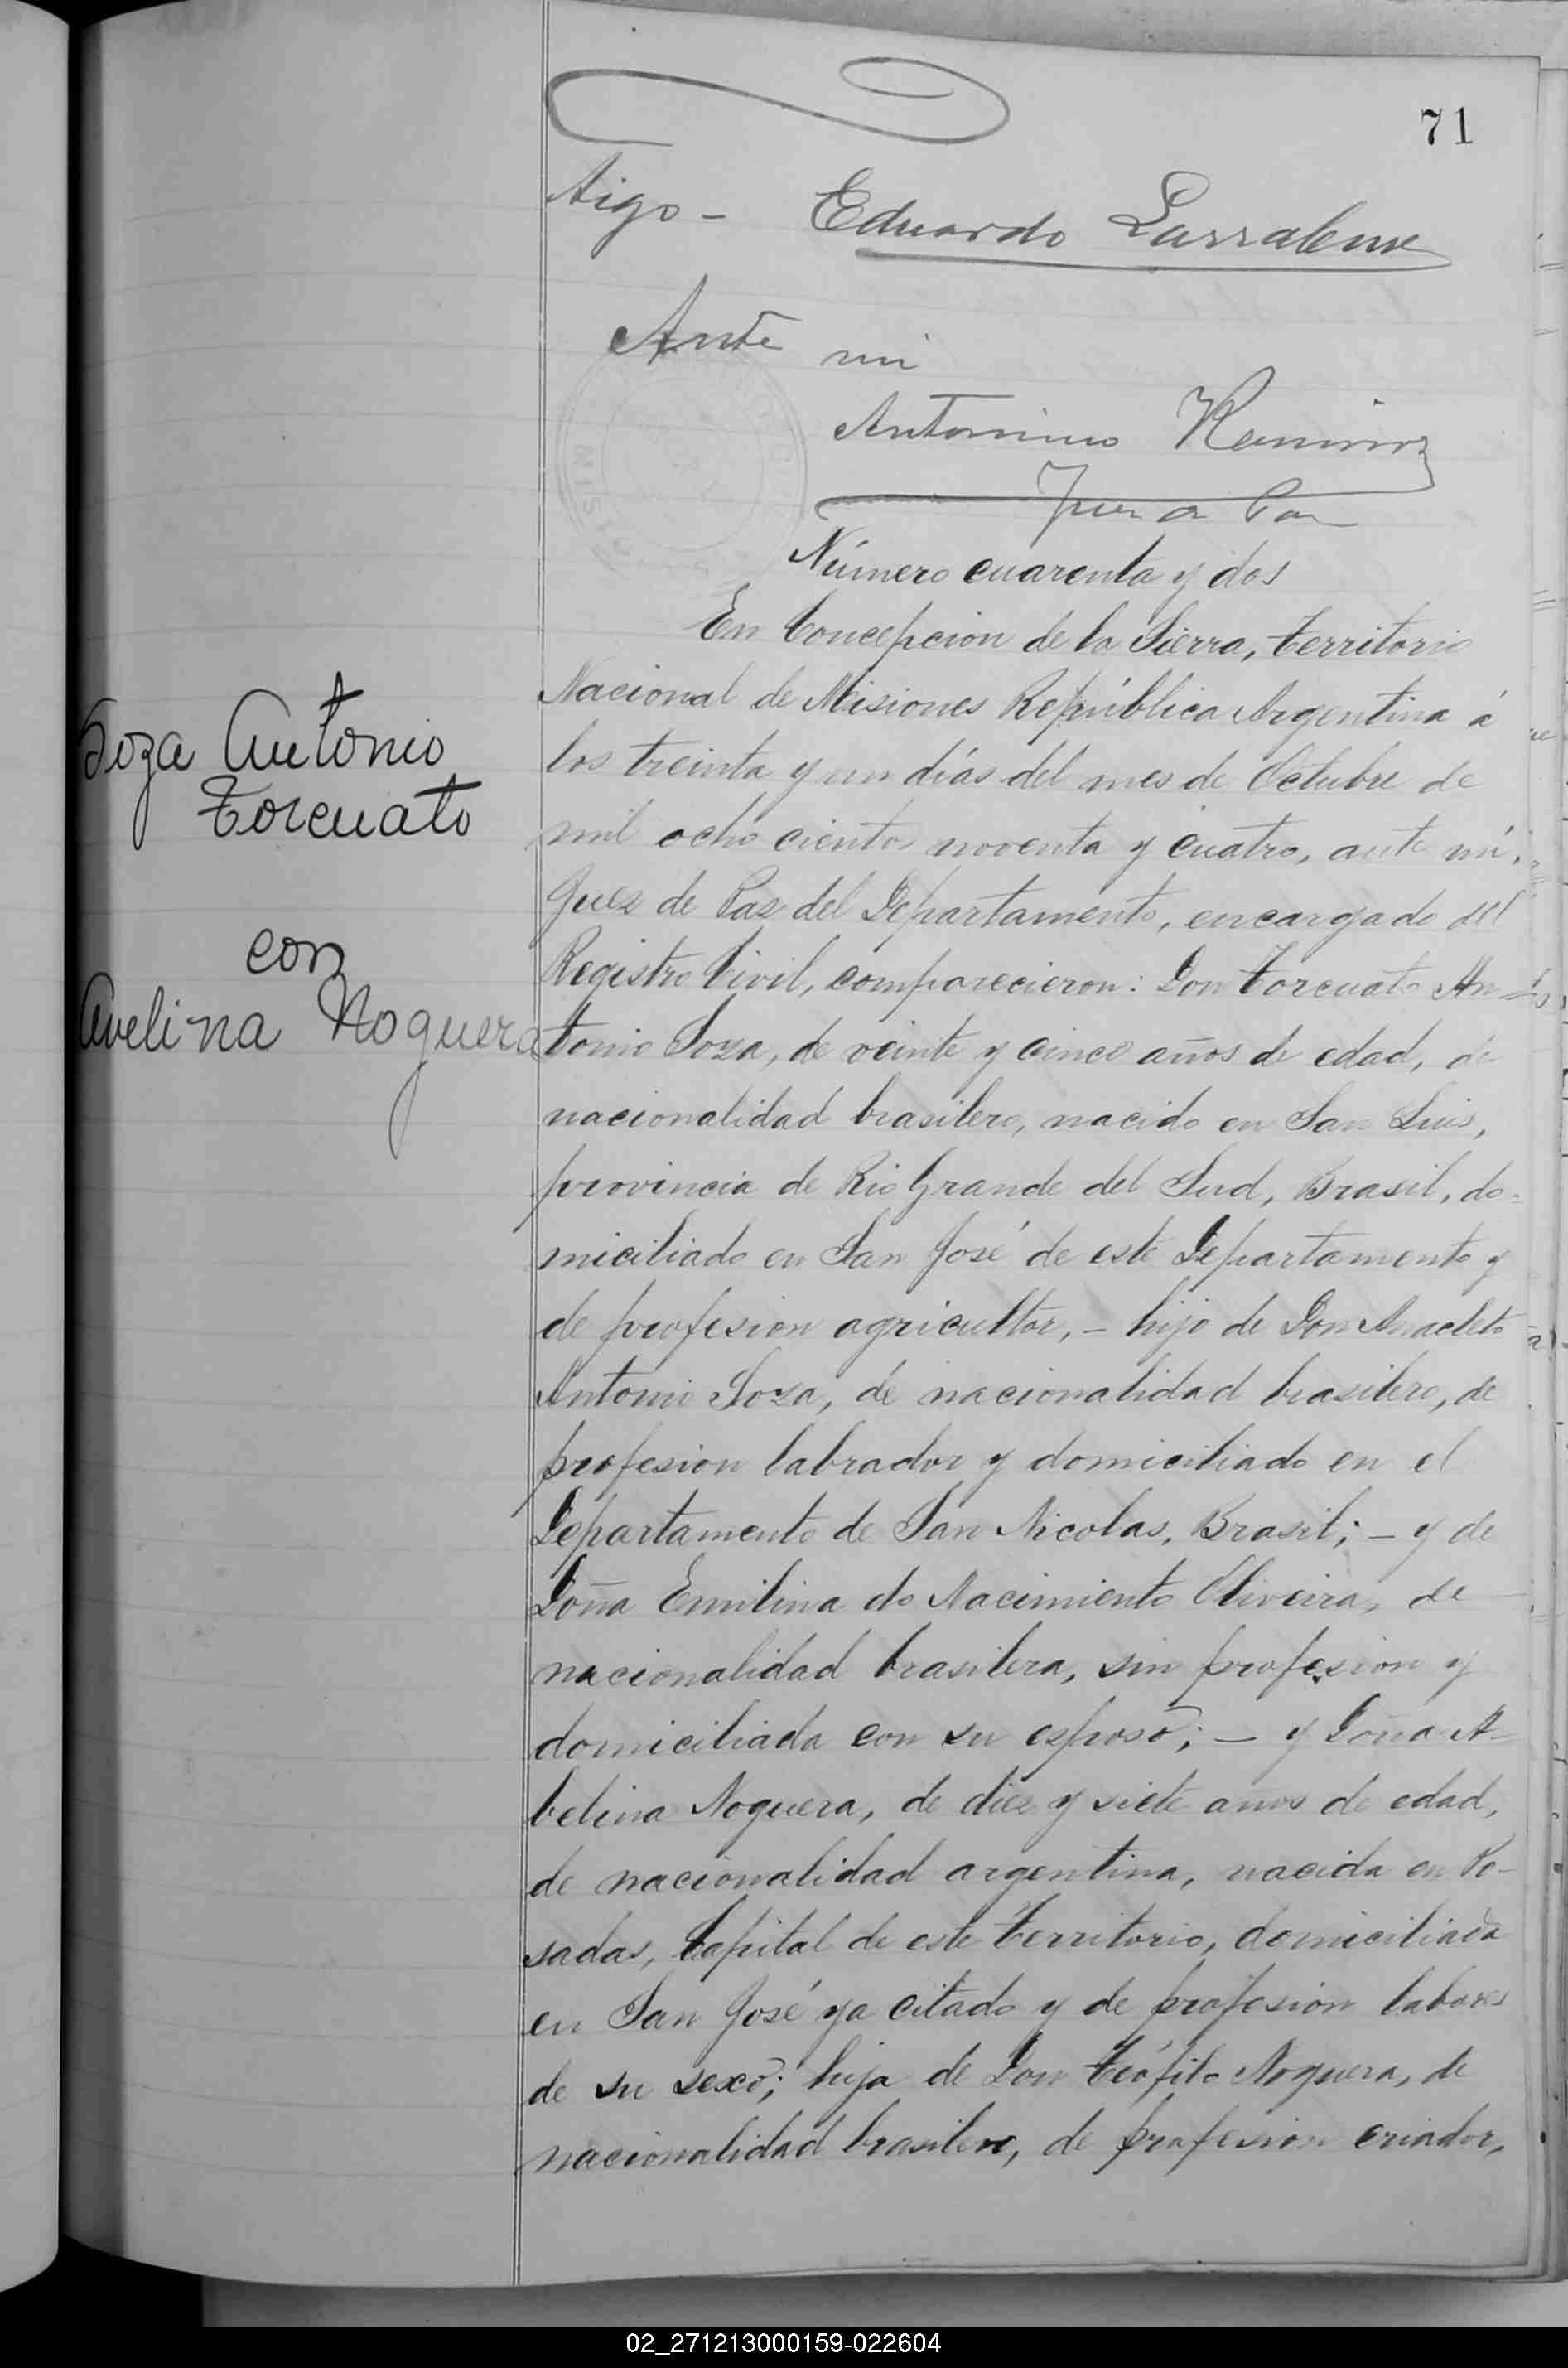 71
Tigo - Eduardo Larralense
Ante mi
Antonino Ramirez
Juez de Paz
Número cuarenta y dos
En Concepcion de la Sierra, Territorio
Nacional de Misiones República Argentina á
los treinta y un días del mes de Octubre de
mil ocho cientos noventa y cuatro, ante mí,
Juez de Paz del Departamento, encargado del
Registro Civil, comparecieron: Don Torcuato An-
tonio Soza, de veinte y cinco años de edad, de
nacionalidad brasilero, nacido en San Luis,
provincia de Rio Grande del Sud, Brasil, do-
miciliado en San José de este Departamento y
de profesion agricultor, - hijo de Don Anacleto
Antonio Soza, de nacionalidad brasilero, de
profesion labrador y domiciliado en el
Departamento de San Nicolas, Brasil; - y de
Doña Emilina do Nacimiento Oliveira, de
nacionalidad brasilera, sin profesion y
domiciliada con su esposo; - y Doña A-
belina Noguera, de diez y siete años de edad,
de nacionalidad argentina, nacida en Po-
sadas, Capital de este Territorio, domiciliada
en San José ya citado y de profesion labores
de su sexo; hija de Don Teófilo Noguera, de
nacionalidad brasilero, de profesion criador,
Soza Antonio
Torcuato
con
Avelina Noguera
02_271213000159-022604